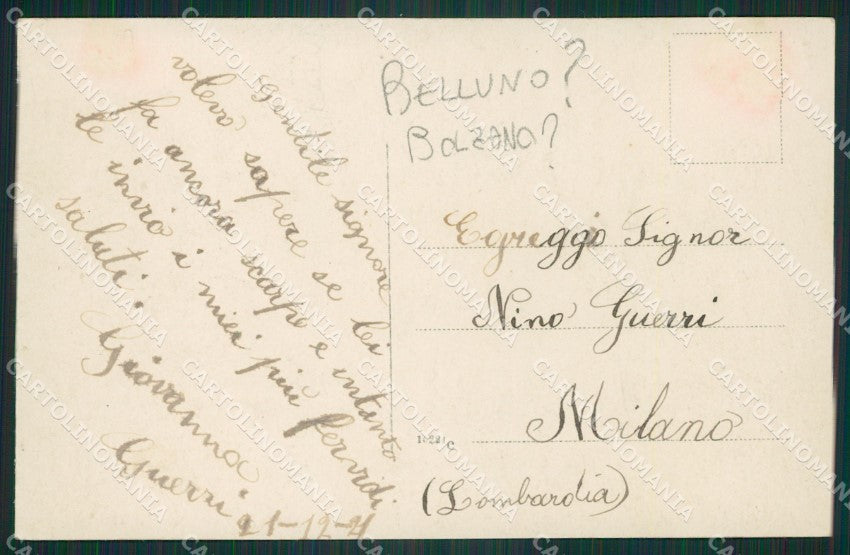 Gentile signore
volevo sapere se lei
fa ancora scarpe e intanto
le invio i miei più fervidi
saluti.
Giovanna
Guerri
21-12-21
BELLUNO?
BOLZANO?
Egreggio Signor
Nino Guerri
Milano
(Lombardia)
CARTOLINOMANIA